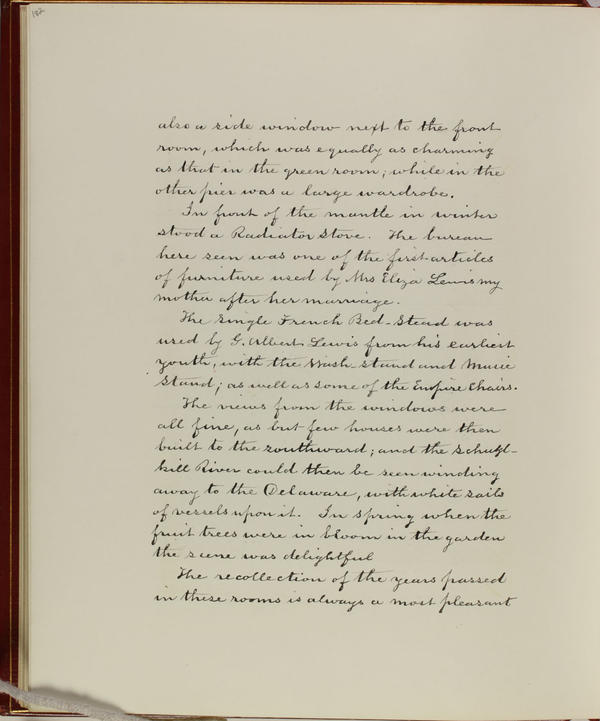 182
also a side window next to the front
room, which was equally as charming
as that in the green room; while in the
other pier was a large wardrobe.
In front of the mantle in winter
stood a Radiator Stove. The bureau
here seen was one of the first articles
of furniture used by Mrs Eliza Lewis my
mother after her marriage.
The single French Bed-Stead was
used by G. Albert Lewis from his earliest
youth, with the Wash-Stand and Music
Stand; as well as some of the Empire Chairs.
The views from the windows were
all fine, as but few houses were then
built to the southward; and the Schuyl-
kill River could then be seen winding
away to the Delaware, with white sails
of vessels upon it. In spring when the
fruit trees were in bloom in the garden
the scene was delightful
The recollection of the years passed
in these rooms is always a most pleasant